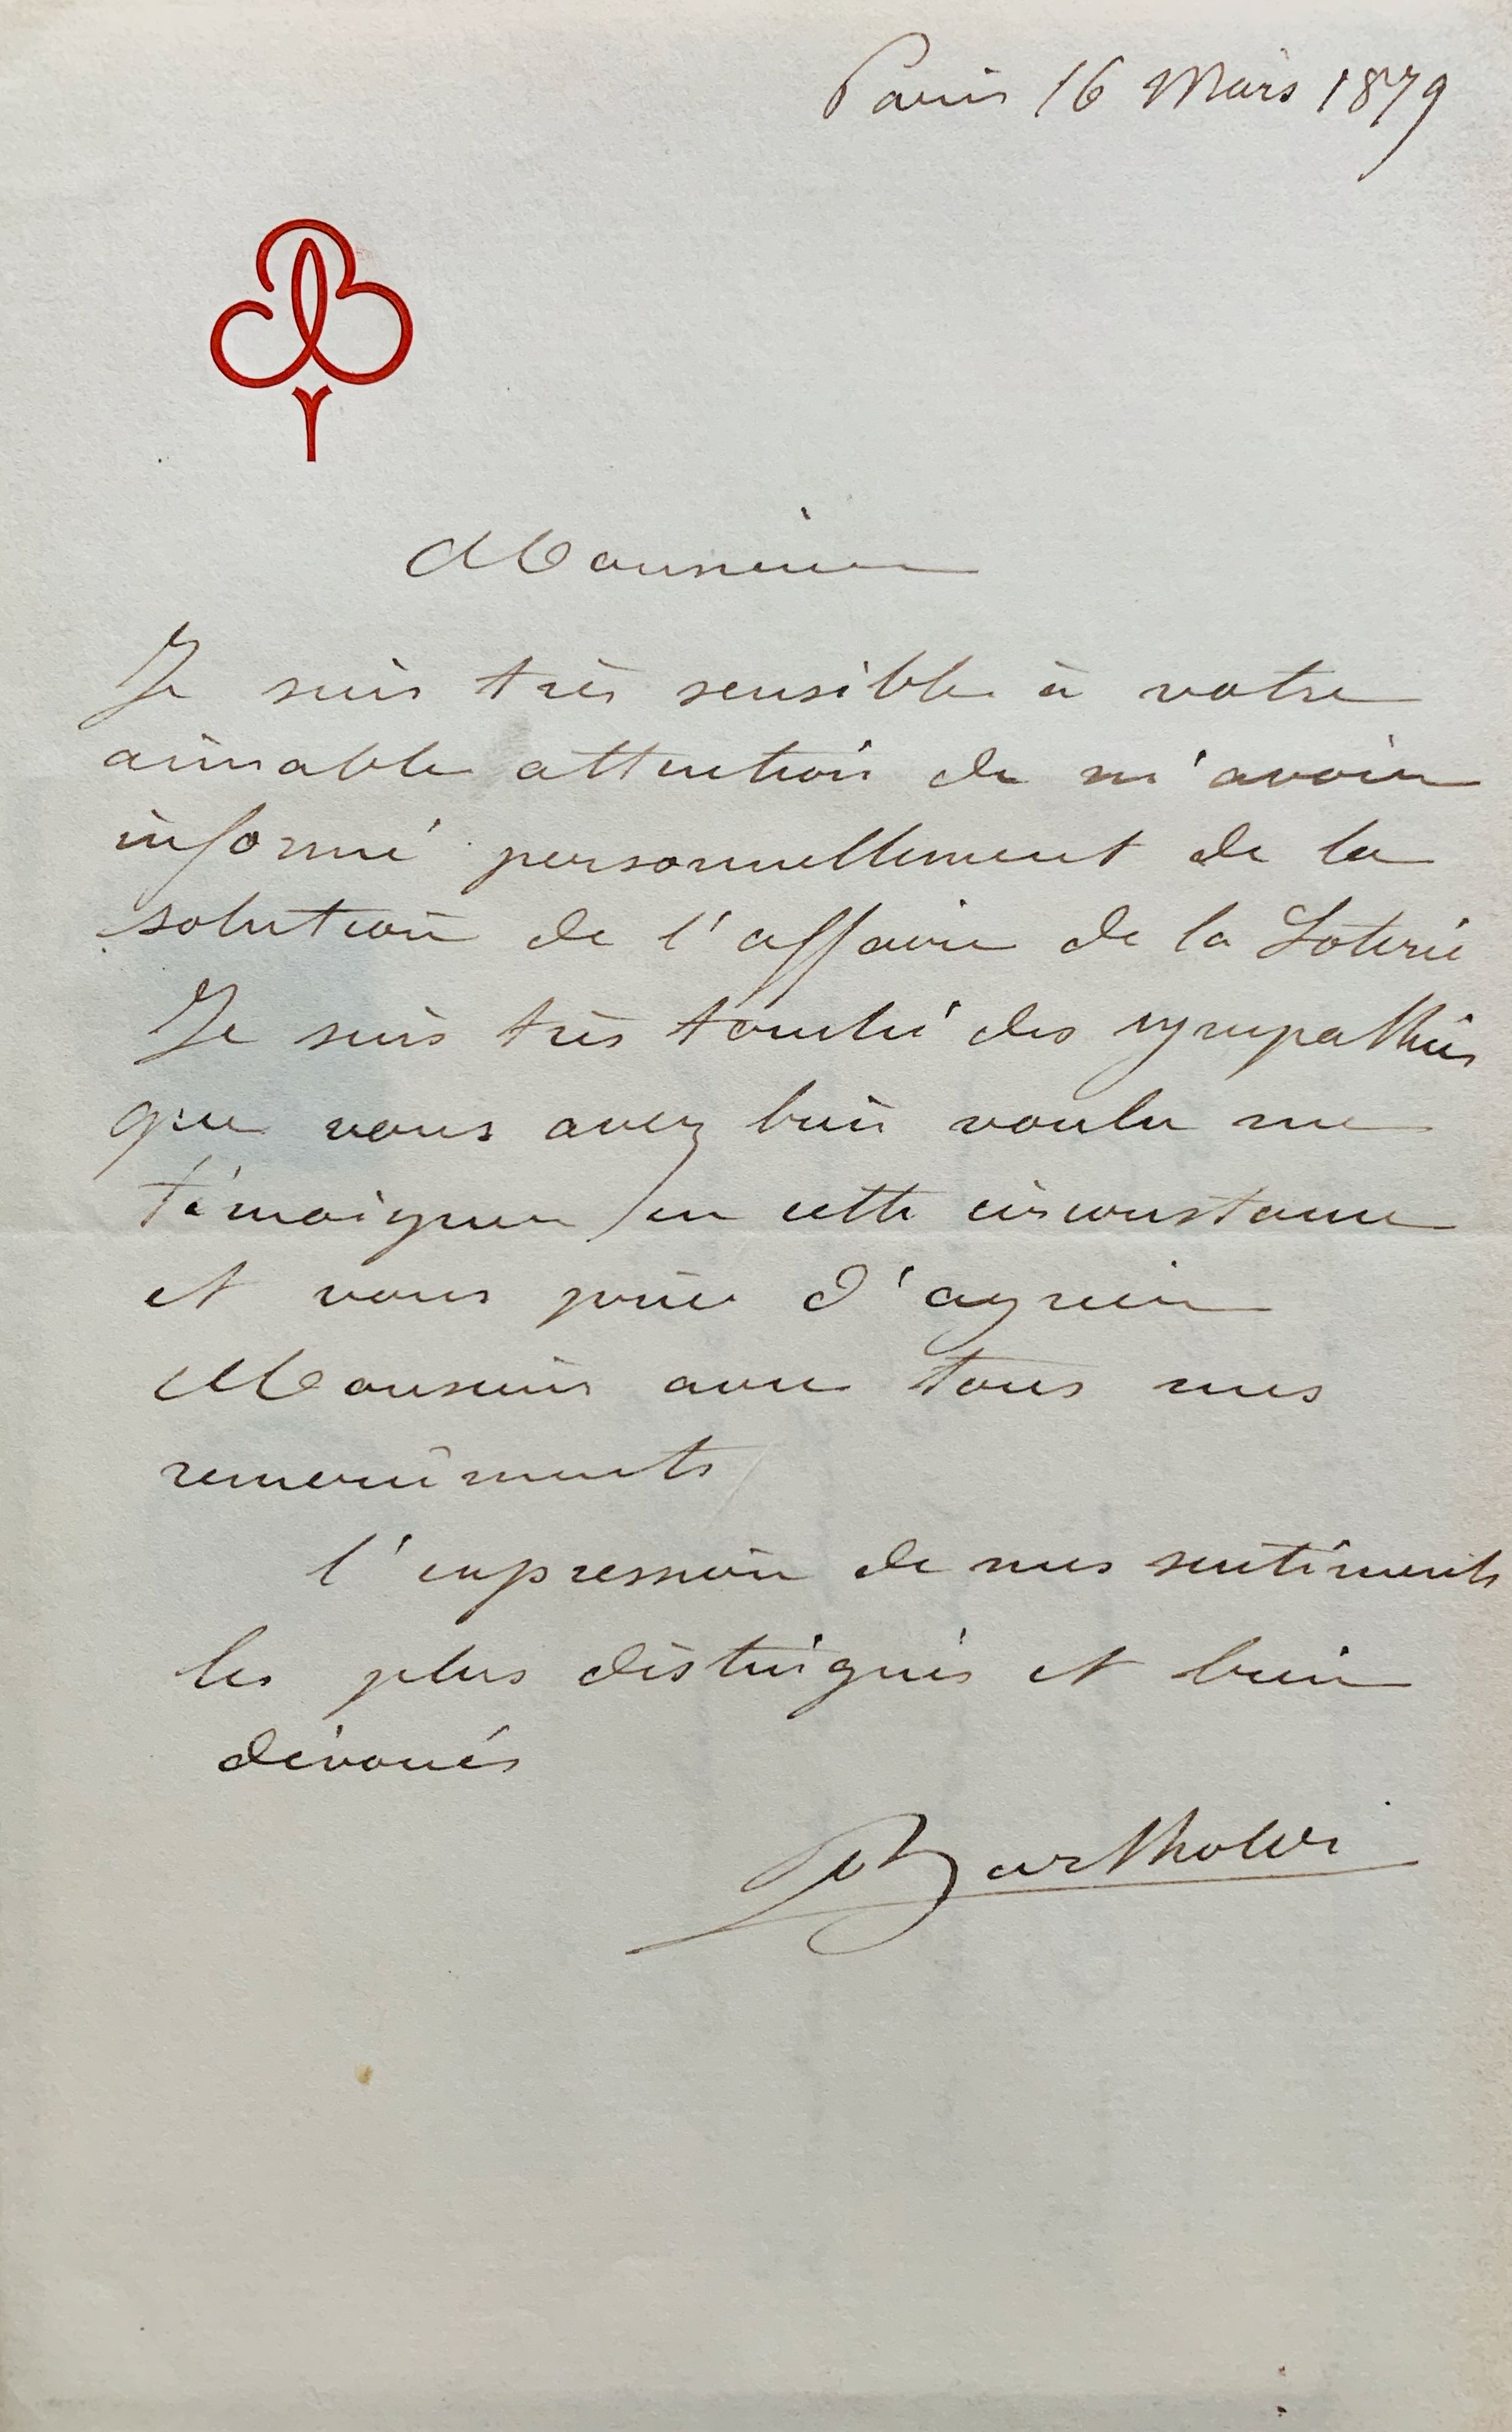 Paris 16 Mars 1879
Monsieur
Je suis très sensible à votre
aimable attention de m'avoir
informé personnellement de la
solution de l'affaire de la Loterie
Je suis très touché des sympathies
que vous avez bien voulu me
témoigner en cette circonstance
et vous prie d'agréer
Monsieur avec tous mes
remerciments
l'expression de mes sentiments
les plus distingués et bien
dévoués
Bartholdi